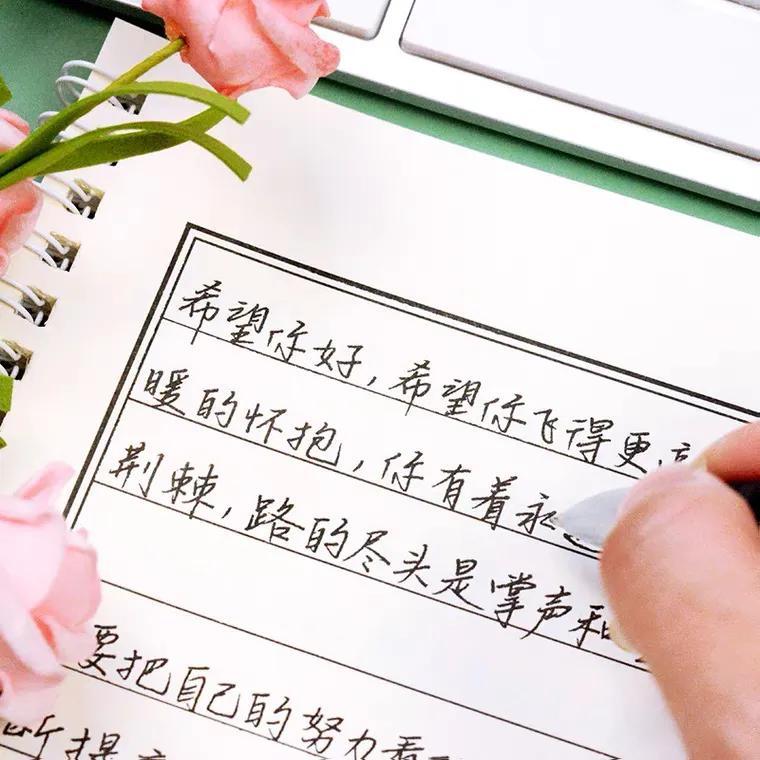 希望你好，希望你飞得更高
暖的怀抱，你有着永
荆棘，路的尽头是掌声和
要把自己的努力看
断提高